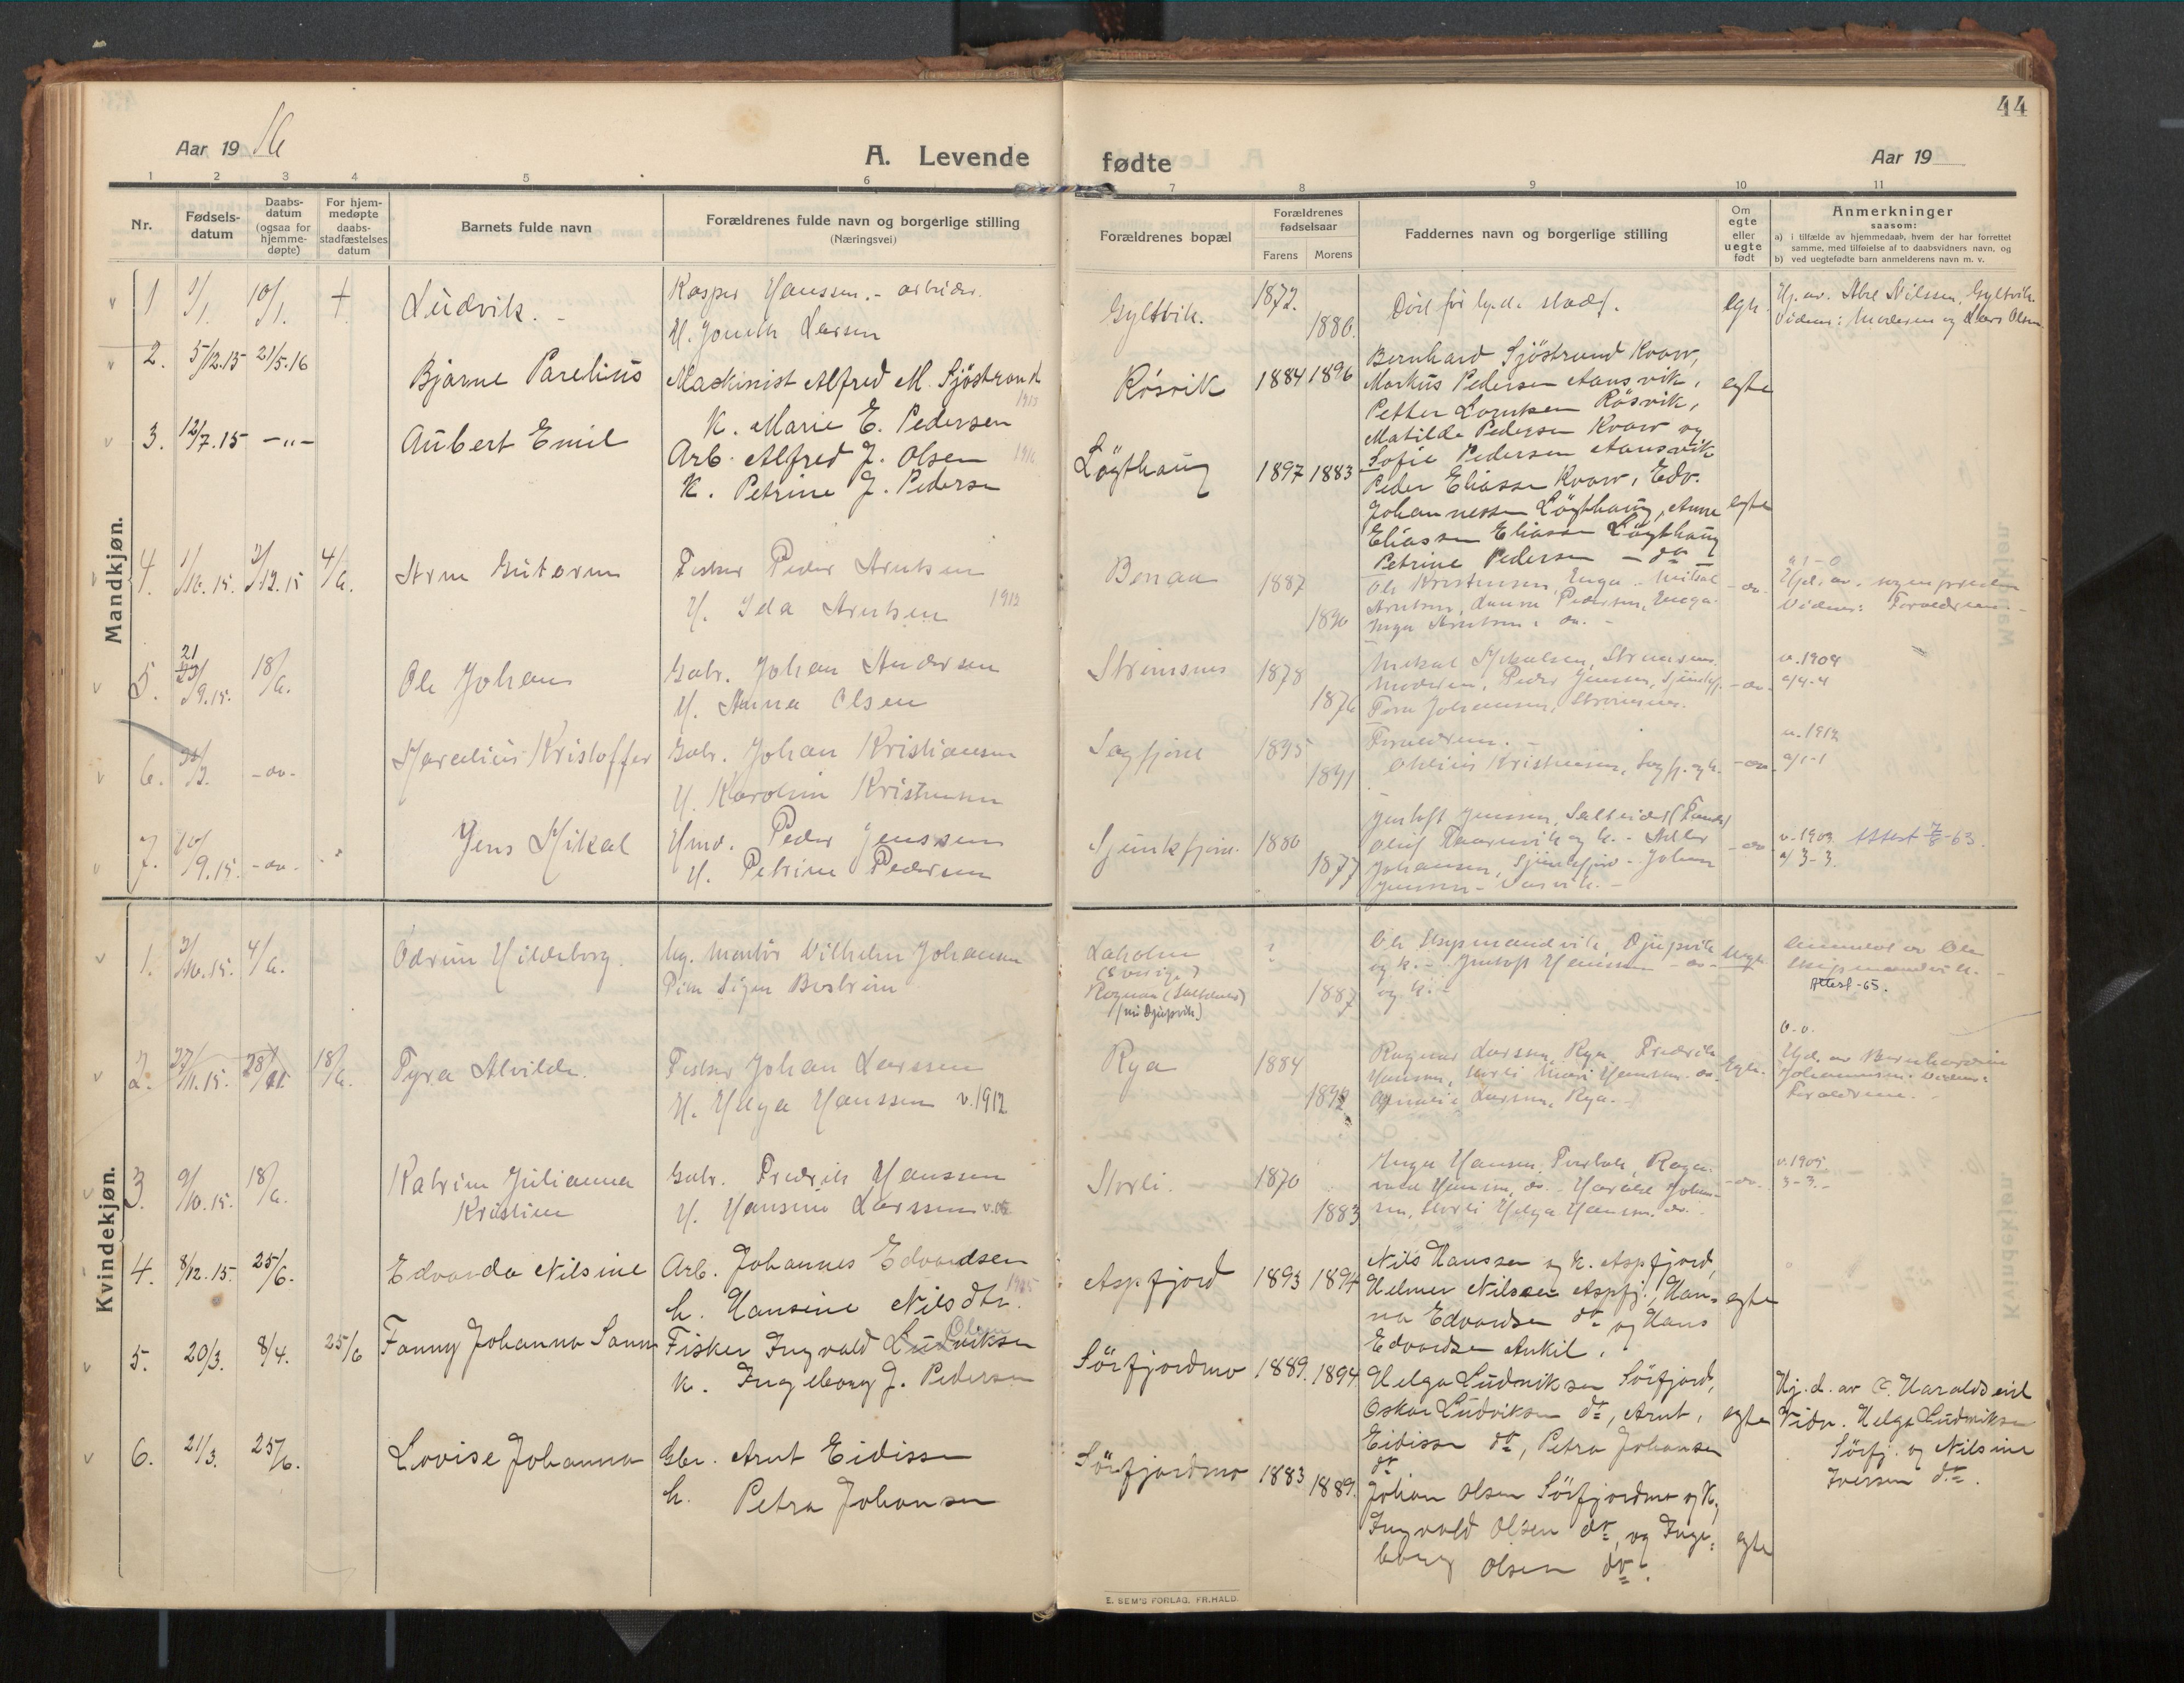 44
Aar 19 16
A. Levende
fødte
Aar 19
1 2 3 4 5 6 7 8 9 10 11
Nr.
Fødsels-
datum
Daabs-
datum
(ogsaa for
hjemme-
døpte)
For hjem-
medøpte
daabs-
stadfæstelses
datum
Barnets fulde navn
Forældrenes fulde navn og borgerlige stilling
(Næringsvei)
Forældrenes bopæl
Forældrenes
fødselsaar
Farens Morens
Faddernes navn og borgerlige stilling
Om
egte
eller
uegte
født
Anmerkninger
saasom:
a) i tilfælde av hjemmedaab, hvem der har forrettet
samme, med tilføielse af to daabsvidners navn, og
b) ved uegtefødte barn anmelderens navn m. v.
Mandkjøn.
1 1/1. 10/1. + Ludvik.
Kasper Hanssen. - arbeider.
Larsen
Gyltvik. 1872. 1886.
Død før
Nilssen, Gyltvik.
og Lars Olsen.
2. 5/12.15 21/5.16 Bjarne Parelius
Maskinist Alfred M. Sjöstrand
1915
K. Marie E. Pedersen
Rösvik 1884 1896
Bernhard Sjöstrand Kvarv,
Markus Pedersen Aansvik,
Petter Lorntsen Rösvik,
Matilde Pedersen Kvarv og
Sofie Pedersen Aansvik
egte
3. 12/7.15 -"- Aubert Emil
Arb. Alfred J. Olsen 1916
K. Petrine J. Pedersen
Lögthaug 1897 1883
Peder Eliassen Kvarv, Edv.
Johannessen Lögthaug, Anne
Eliassen Eliassen Lögthaug
Petrine Pedersen - do -
egte
4. 1/10.15. 3/12.15 4/6. Arne Guttorm
Fisker Peder Arntsen
H. Ida Arntsen 1912
Bonaa 1887 1890
Arntsen, Pedersen, Enga.
Inga Arntsen, do. -
- do.
Forældrene
5. 21/9.15. 18/6. Ole Johan
Gbr. Johan Andersen
H. Anna Olsen
Strömsnes 1878 1876
Mikal Mikalsen, Strömsnes.
Moderen, Peder Jenssen,
Johansen, Strömsnes.
- do.
v. 1904
a/4-4
6. - do - Haralius Kristoffer
Gbr. Johan Kristiansen
H. Karoline Kristensen
Sagfjord 1895 1891
Forældrene. -
Kristensen, Sagfj. og h.
- do.
v. 1912
a/1-1
7. 10/9.15. - do - Jens Mikal
Hmd. Peder Jenssen
H. Petrine Pedersen
Sjunkfjord. 1880 1877
Jentoft Jenssen,
Johansen, Sjunkfjord - Johan
Jenssen -
- do
v. 1903 Attest 7/8-63.
a/3-3.
Kvindekjøn.
1. 3/10.15. 4/6. Odrun Hildeborg.
Ug. Montör Vilhelm Johansen
Pike Signe Boström
Laholm
(Sverige)
Rognan (Saltdal)
(nu Djupvik)
? 1887
Ole Skipmandvik, Djupvik
og k. - Jentoft Hanssen - do -
og k. -
Uegte.
Anmeldt av Ole
Skipmandvik.
Attest -65.
2. 27/11.15. 28/11. 18/6. Fyra Alvilde.
Fisker Johan Larssen
H. Helga Hanssen v. 1912
Rya 1884 1892
Ragnar Larssen, Rya. Fredrik
Hanssen, Storli Hanssen. do.
Larssen, Rya. -
Egte.
0-0.
Hjd. av Bernhardine
Johannesen.
Forældrene. -
3. 9/10.15. 18/6. Katrine Julianna
Kristine
Gbr. Fredrik Hanssen
H. Hansine Larssen
Storli. 1870 1883
Inga Hansen,
Hanssen, do. - Harald Johan-
sen, Storli Helga Hanssen. do. -
- do.
v. 1905
3-3. -
4. 8/12.15. 25/6. Edvarda Nilsine
Arb. Johannes Edvardsen
1915
h. Hansine Nilsdtr.
Aspfjord 1893 1894
Nils Hanssen og K. Aspfjord,
Helmer Nilssen Aspfj., Han-
na Edvardsen do og Hans
Edvardsen Ankil.
egte
5. 20/3. 8/4. 25/6 Fanny Johanna Sanna
Olsen
Fisker Ingvald Ludviksen
k. Ingeborg J. Pedersen
Sörfjordmo 1889. 1894
Helga Ludviksen Sörfjord,
Oskar Ludviksen do, Arnt,
Eidissen do, Petra Johansen
do
egte
Hj. d. av C. Haraldseid
Vidn. Helga Ludviksen
Sörfj. og Nilsine
Iversen do.
6. 21/3. 25/6. Lovise Johanna
Gbr. Arnt Eidissen
h. Petra Johansen
Sörfjordmo 1883 1889.
Johan Olsen Sörfjordmo og K,
Ingvald Olsen do, og Inge-
borg Olsen do.
egte
E. SEM'S FORLAG, FR.HALD.